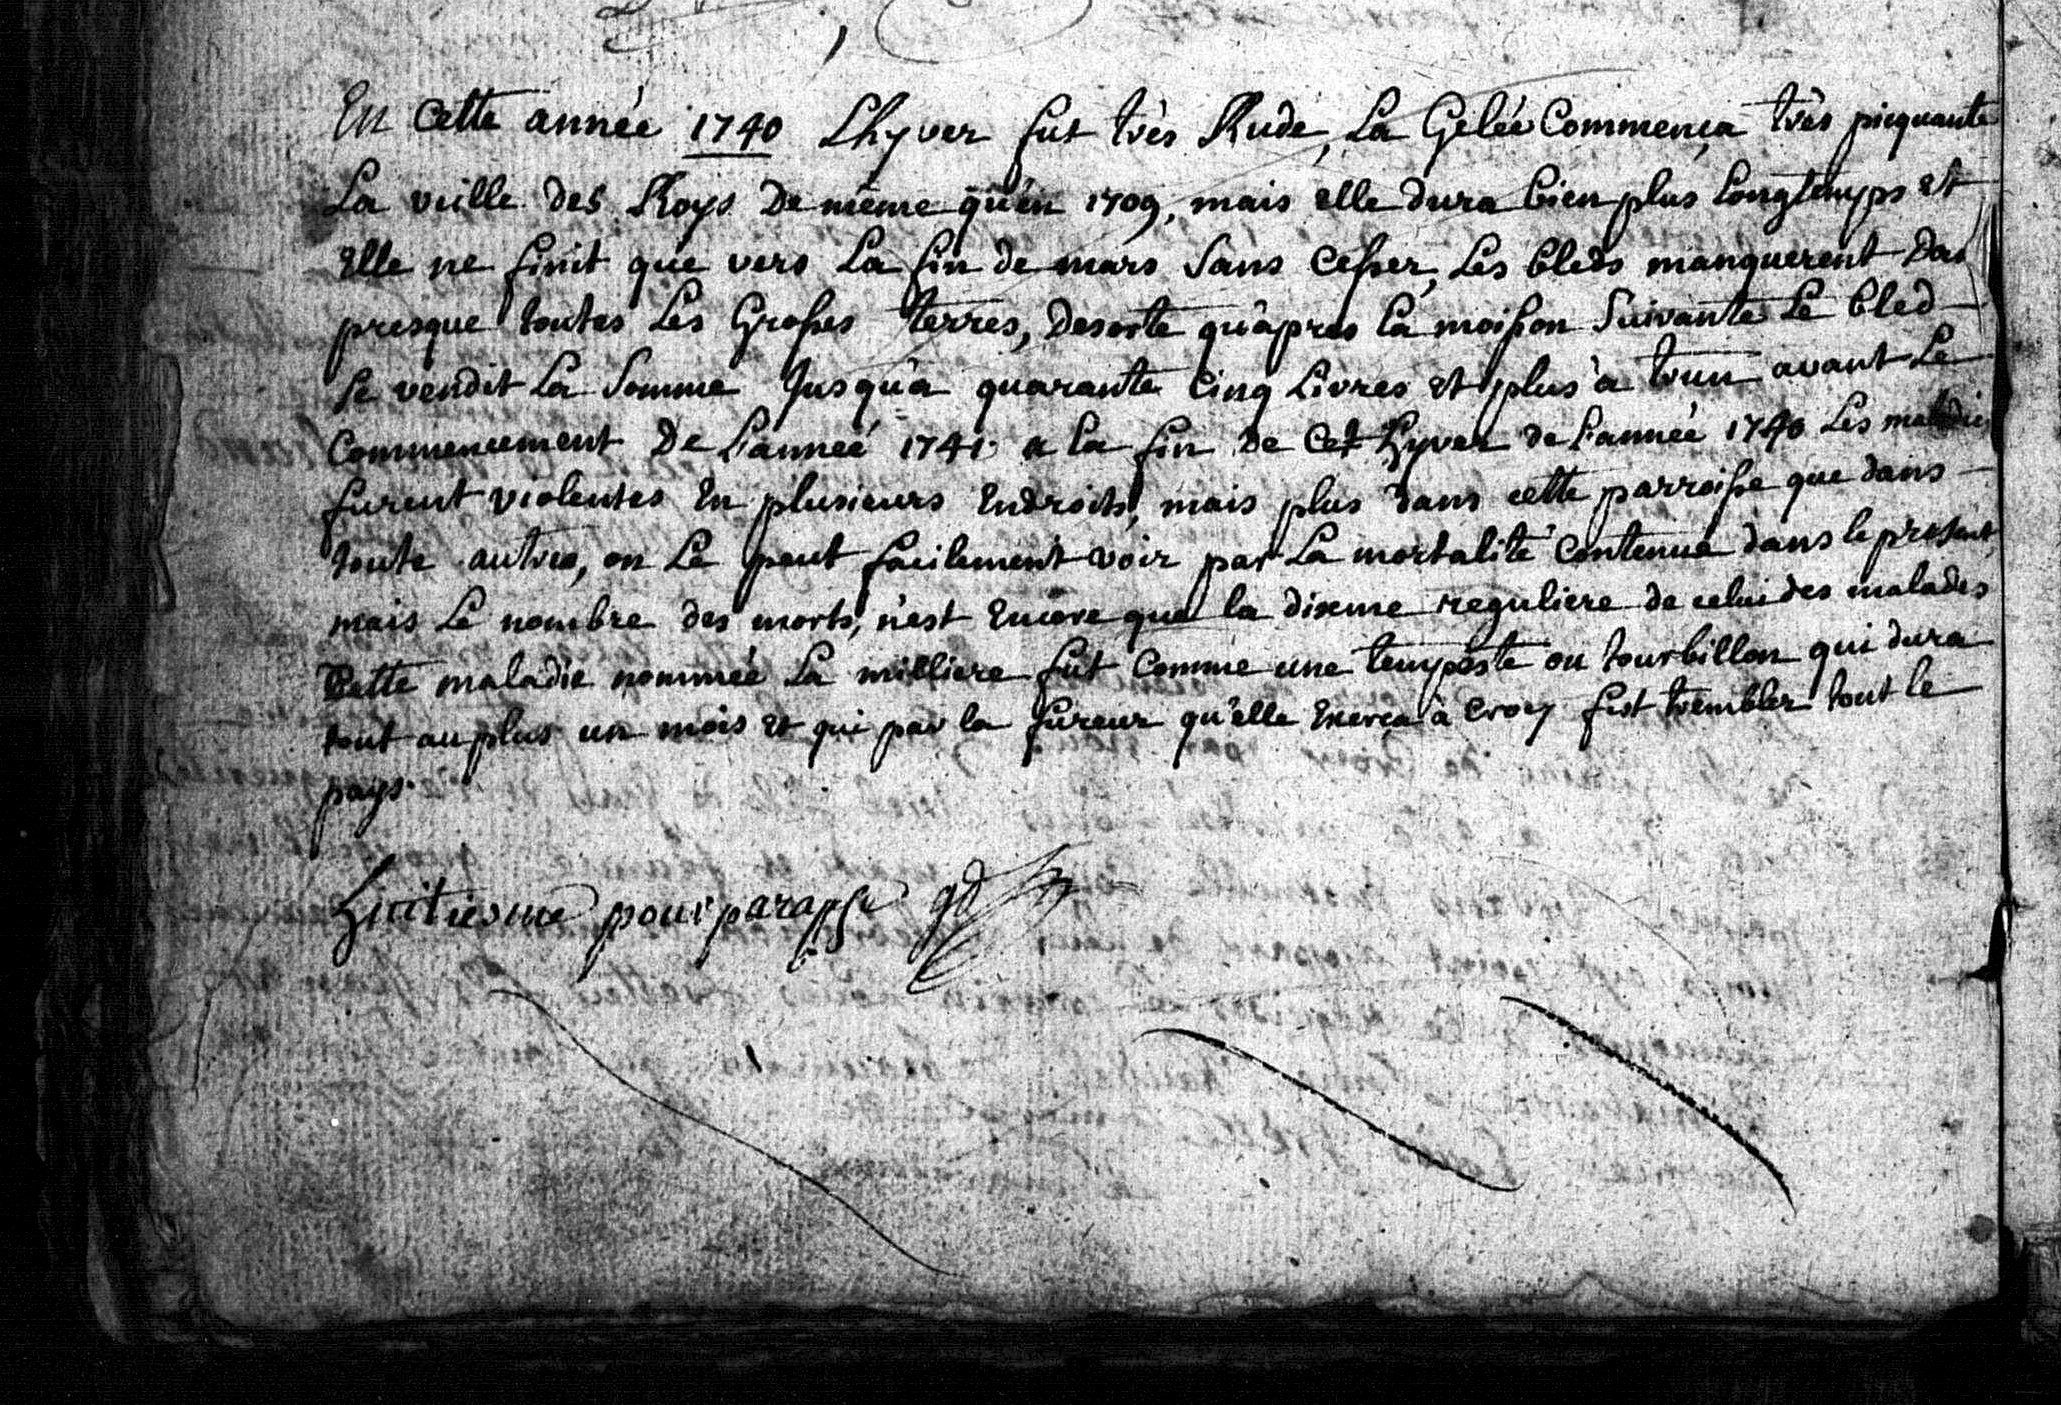 En cette année 1740 Lhyver fut très Rude, La Gelée Commença très picquante
La veille des Roys De même qu'en 1709, mais elle dura bien plus longtemps et
Elle ne finit que vers La fin de mars Sans Cesser, Les bleds manquerent Dans
presque toutes Les Grosses terres, Desorte qu'apres la moisson Suivante Le bled
Se vendit La Somme Jusqu'a quarante Cinq Livres et plus a avant Le
Commencement De L'anneé 1741. a la fin De Cet hyver de l'anneé 1740 Les maladies
furent violentes En plusieurs Endroits, mais plus dans cette parroisse que dans
toute autre, on Le peut facilement voir par La mortalité Contenue dans le present,
mais Le nombre des morts, n'est Encore que la dixme reguliere de celui des malades
Cette maladie nommeé La milliere fut Comme une tempeste ou tourbillon qui dura
tout au plus un mois et qui par la fureur qu'elle Exerça à Croy fist trembler tout le
pays.
huitiesme pour paraphe